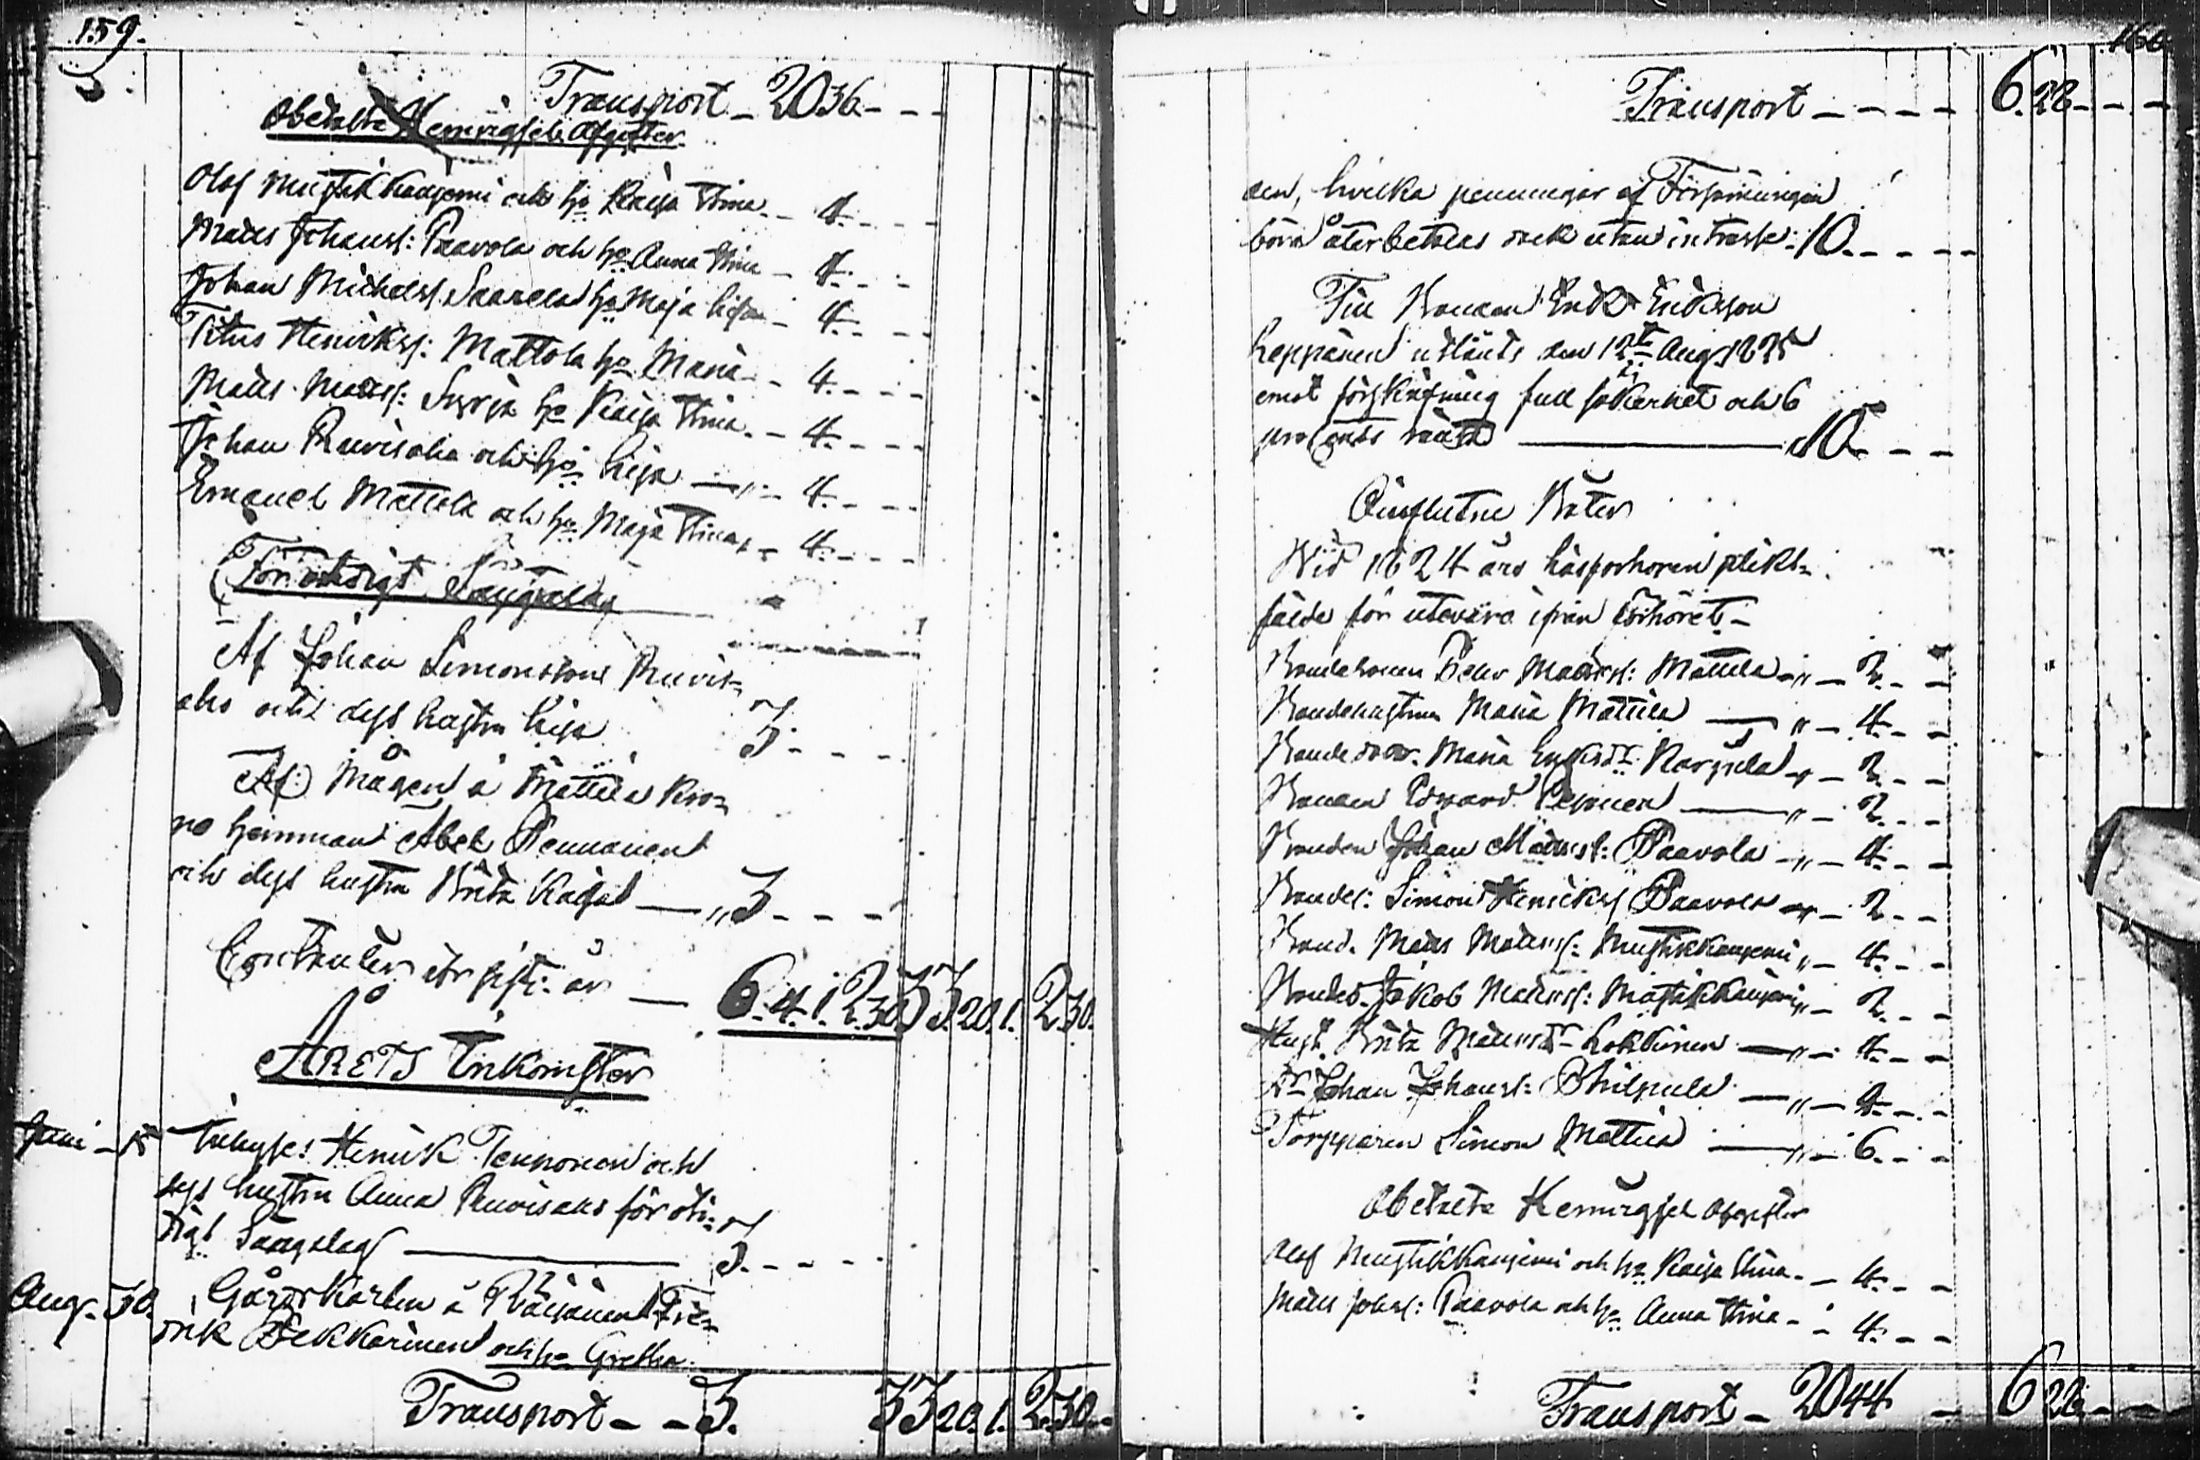 159.
Transport - 2036 - - -
Obetalte Hemvigsels Afgifter
Olof Mustikkaniemi och h:o Kaisa Stina - 4 - - -
Mats Johanss: Paavola och h:o Anna Stina - 4 - - -
Johan Michelss. Saarela h:o Maja Lisa - 4 - - -
Titus Henrikss: Mattola h:o Maria - 4 - - -
Mats Matss: h:o Kaisa Stina - 4 - - -
Johan Ruvisaho och h:o Lisa - " - 4 - - -
Emanuel Mattola och h:o Maja Stina - 4 - - -
För otidigt Sängelag
Af Johan Simonsson Ruvis=
aho och dess hustru Lisa 3 - - -
Af Mågen å Mattila Kro=
no hemman Abel Pennanen
och dess hustru Brita Kaisa - " 3 - - -
Contanter sist: år - 6. 4. 1. 2. 30. 33. 20. 1. 2. 30.
ÅRETS Inkomster
Juni - 15 Inhyses Henrik Tenponen och
dess hustru Anna Ruvisaho för oti=
digt Sängelag 3 - - -
Aug. 30. Gårdskarlen å Räisänen Fre=
drik Pekkarinen och h:o Gretha
Transport - - 3. 33 20. 1. 2. 30.
160
Transport - - - - 6. 28 - - -
den, hvilka penningar af Församlingen
böra återbetalas dock utan intresse: 10. - - -
Till Bonden Erik Ericksson
Leppänen utlånts den 12te Aug. 1825
emot förskrifning full säkerhet och 6
procents ränta 10 - - -
Influtne Böter
Wid 1824 års läsförhören plikt=
fälde för utevaro ifrån förhöret -
Bondesonen Peter Matss: Mattila - " - 2. - -
Bondehustrun Maria Mattila - " - 4. - -
Bonde dottr. Maria Karjula - " - 2. - -
Bonden Edvard Reponen - " - 2. - -
Bonden Johan Matss: Paavola - " - 4. - -
Bondes: Simon Henrikss Paavola - " - 2. - -
Bond. Mats Matss: Mustikkaniemi " - 4. - -
Bondes. Jakob Matss: Mustikkaniemi " - 2. - -
Hust. Brita Matsdr Lokkinen - " - 4. - -
Dr Johan Johanss: Philpula - " - 2. - -
Torpparen Simon Mattila - " - 6. - -
Obetalte Hemvigsel Afgifter
Olof Mustikkaniemi och h:o Kaisa Stina - 4. - -
Mats Johss: Paavola och h:o Anna Stina - - 4. - -
Transport - 2044 - 6 28 - - -